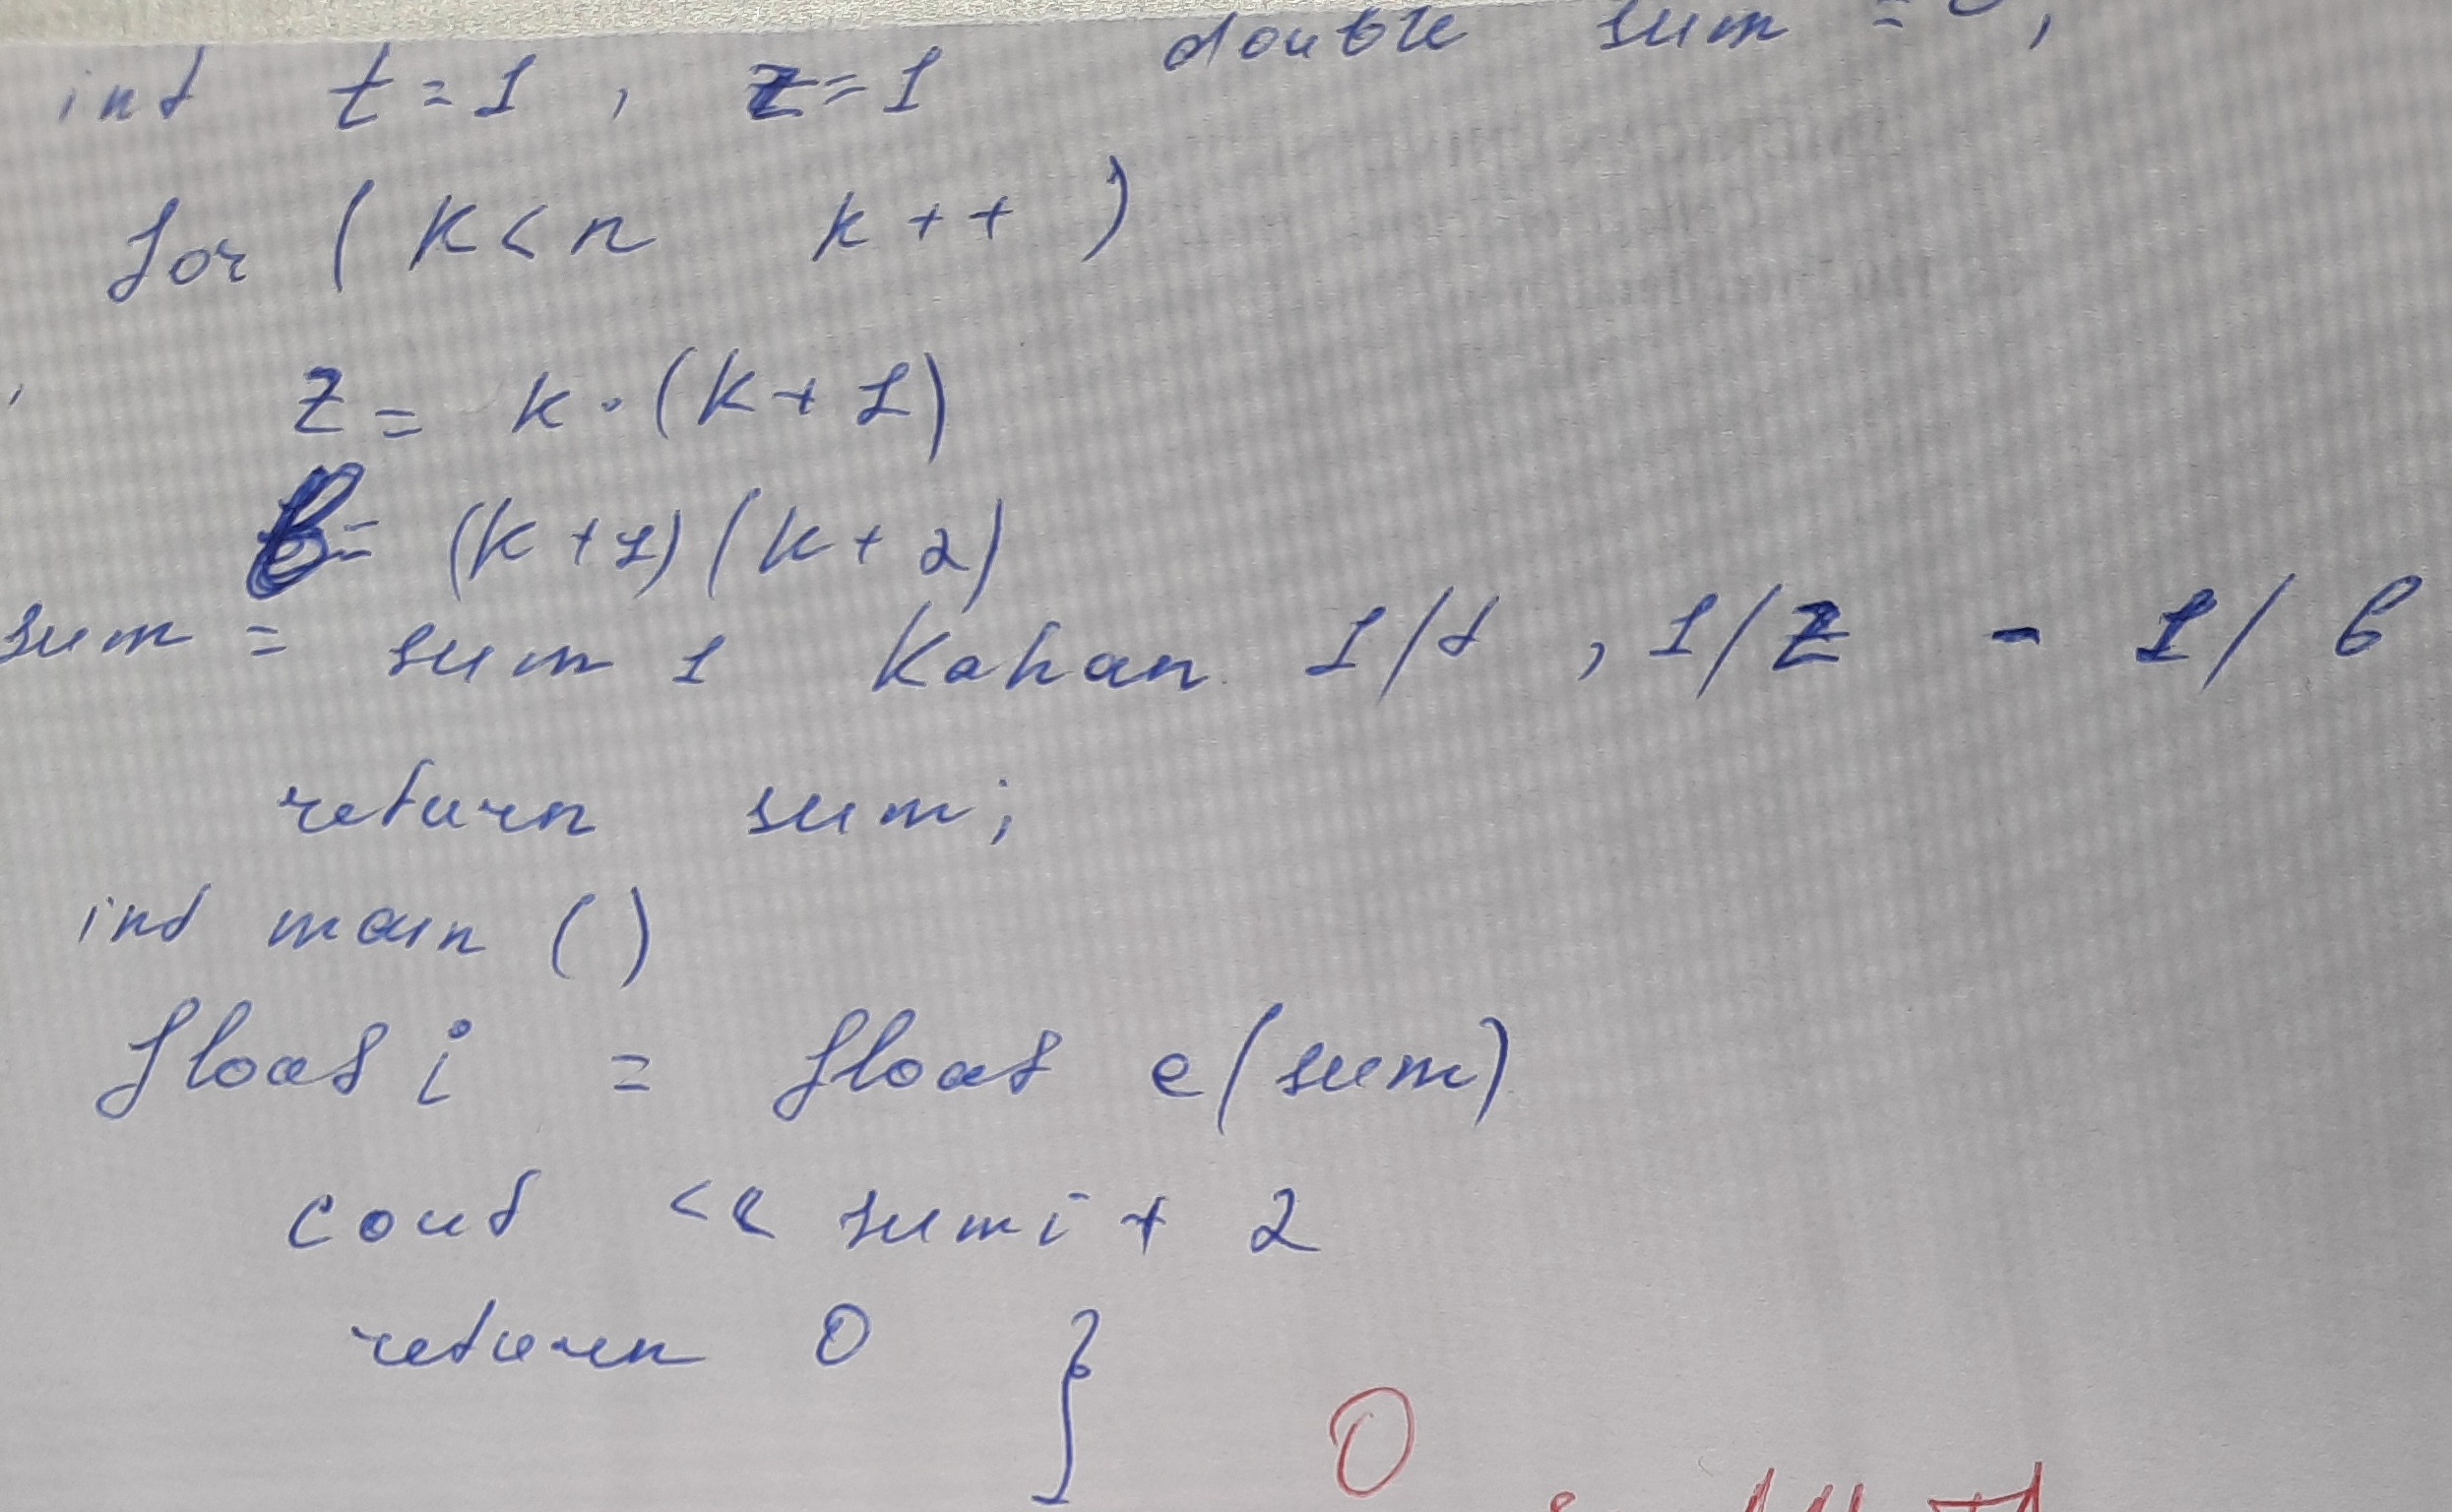 int t=1, z=1 double sum = ,
for (k<n k++)
z= k·(k+1)
b= (k+1)(k+2)
sum = sum 1 Kahan 1/t, 1/z - 1/b
return sum;
int main ()
float i = float e(sum)
cout << sum i + 2
return 0 }
0